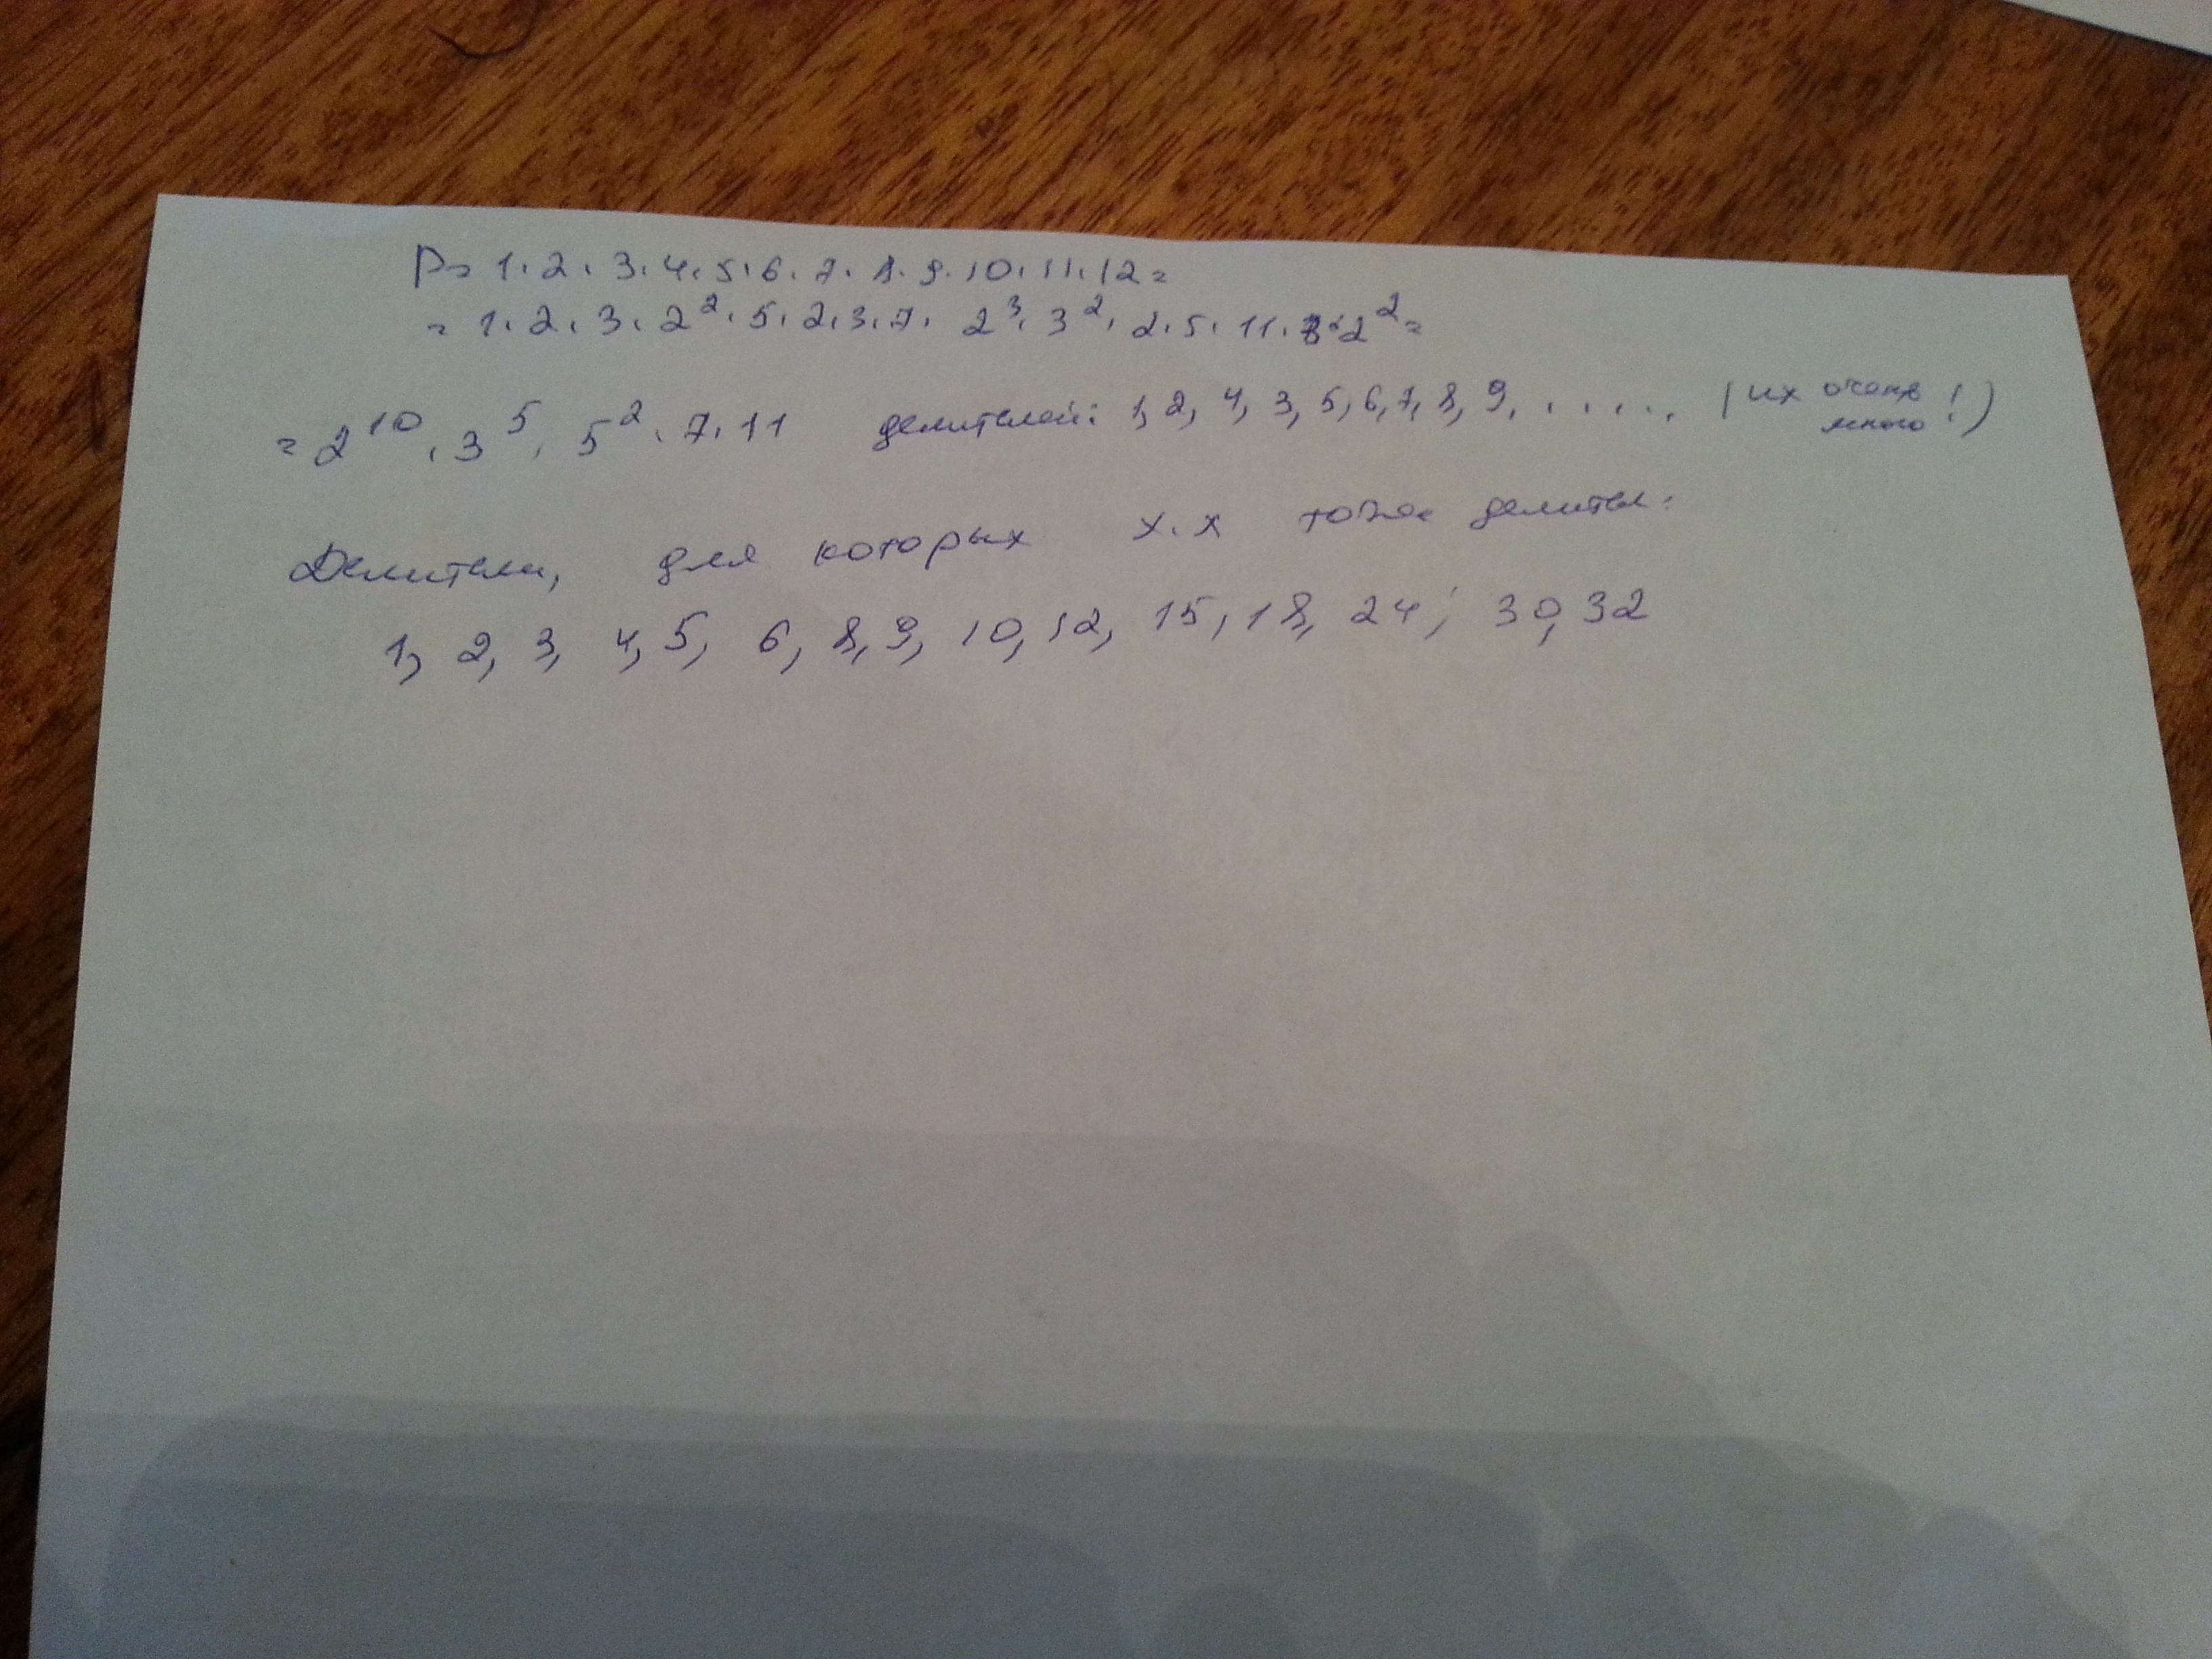 P= 1·2·3·4·5·6·7·8·9·10·11·12=
= 1·2·3·2²·5·2·3·7·2³·3²·2·5·11·3·2²=
= 2¹⁰·3⁵·5²·7·11 делителей: 1, 2, 4, 3, 5, 6, 7, 8, 9, ..... (их очень много!)
Делители, для которых x·x тоже делитель:
1, 2, 3, 4, 5, 6, 8, 9, 10, 12, 15, 18, 24; 30, 32